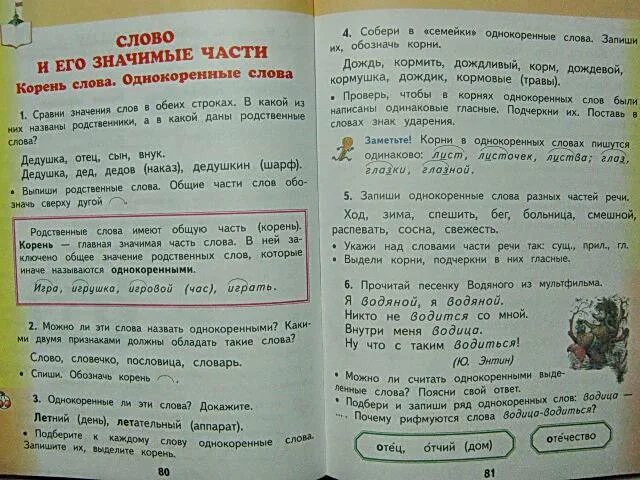 СЛОВО
И ЕГО ЗНАЧИМЫЕ ЧАСТИ
Корень слова. Однокоренные слова
1. Сравни значения слов в обеих строках. В какой из
них названы родственники, а в какой даны родственные
слова?
Дедушка, отец, сын, внук.
Дедушка, дед, дедов (наказ), дедушкин (шарф).
• Выпиши родственные слова. Общие части слов обо-
значь сверху дугой ⌒.
Родственные слова имеют общую часть (корень).
Корень — главная значимая часть слова. В ней за-
ключено общее значение родственных слов, которые
иначе называются однокоренными.
Игра, игрушка, игровой (час), играть.
2. Можно ли эти слова назвать однокоренными? Каки-
ми двумя признаками должны обладать такие слова?
Слово, словечко, пословица, словарь.
• Спиши. Обозначь корень ⌒.
3. Однокоренные ли эти слова? Докажите.
Летний (день), летательный (аппарат).
• Подберите к каждому слову однокоренные слова.
Запишите их, выделите корень.
80
4. Собери в "семейки" однокоренные слова. Запиши
их, обозначь корни.
Дождь, кормить, дождливый, корм, дождевой,
кормушка, дождик, кормовые (травы).
• Проверь, чтобы в корнях однокоренных слов были
написаны одинаковые гласные. Подчеркни их. Поставь в
словах знак ударения.
Заметьте! Корни в однокоренных словах пишутся
одинаково: лист, листочек, листва; глаз,
глазки, глазной.
5. Запиши однокоренные слова разных частей речи.
Ход, зима, спешить, бег, больница, смешной,
распевать, сосна, свежесть.
• Укажи над словами части речи так: сущ., прил., гл.
• Выдели корни, подчеркни в них гласные.
6. Прочитай песенку Водяного из мультфильма.
Я водяной, я водяной.
Никто не водится со мной.
Внутри меня водица.
Ну что с таким водиться!
(Ю. Энтин)
• Можно ли считать однокоренными выде-
ленные слова? Поясни свой ответ.
• Подбери и запиши ряд однокоренных слов: водица —
... . Почему рифмуются слова водица-водиться?
оте́ц, о́тчий (дом)
оте́чество
81